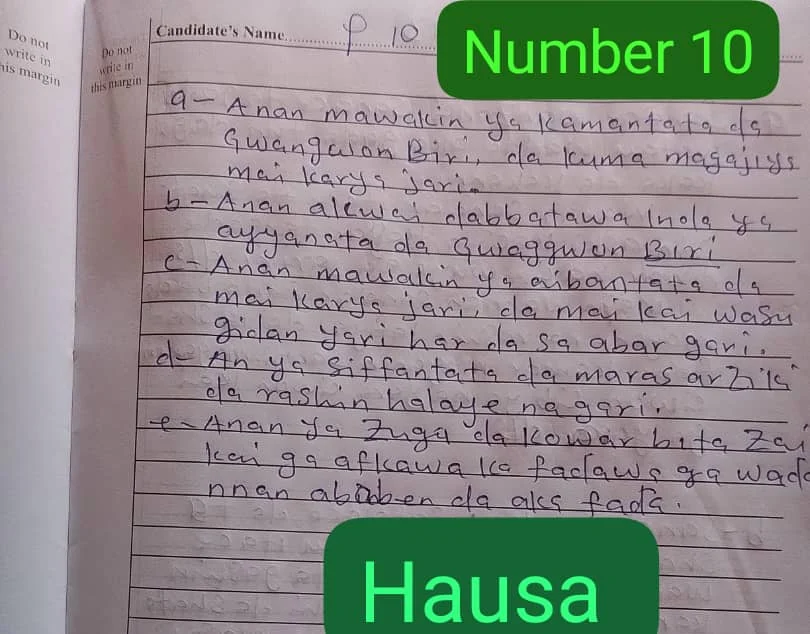 Do not
write in
this margin
Do not
write in
this margin
Candidate's Name
P 10
Number 10
a- Anan mawakin ya kamantata da
Gwangwson Biri, da kuma magajiya
mai karya jari.
b- Anan akwai dabbatawa Inda ya
ayyanata da Gwaggwon Biri
c- Anan mawakin ya aibantata da
mai karya jari, da mai kai wasu
gidan yari har da sa abar gari.
d- An ya siffantata da maras arziki
da rashin halaye na gari.
e- Anan ya Zuga da kowar bita Zai
kai ga afkawa ko fadawa ga wada
nnan ababben da aka fada.
Hausa